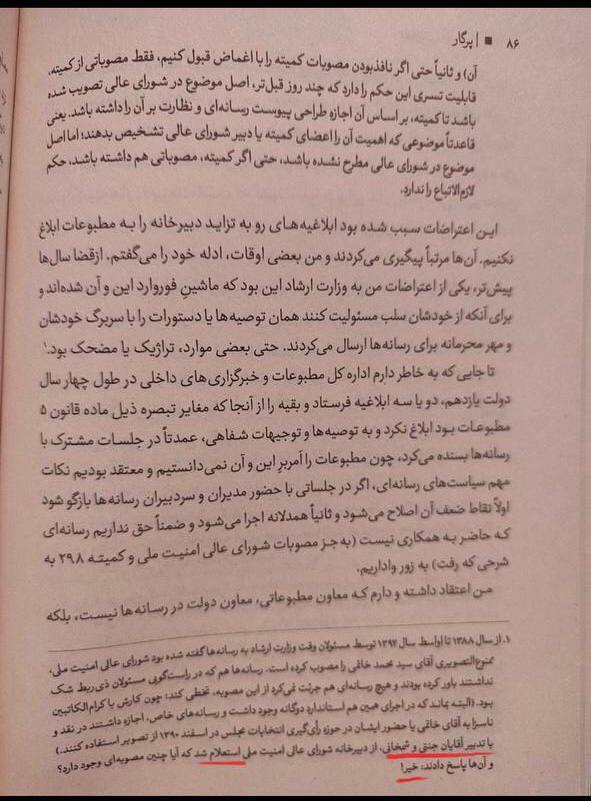 ۸۶ ■ | پرگار
آن) و ثانیاً حتی اگر نافذبودن مصوبات کمیته را با اغماض قبول کنیم، فقط مصوباتی از کمیته،
قابلیت تسری این حکم را دارد که چند روز قبل‌تر، اصل موضوع در شورای عالی تصویب شده
باشد تا کمیته، بر اساس آن اجازه طراحی پیوست رسانه‌ای و نظارت بر آن را داشته باشد. یعنی
قاعدتاً موضوعی که اهمیت آن را اعضای کمیته یا دبیر شورای عالی تشخیص بدهند؛ اما اصل
موضوع در شورای عالی مطرح نشده باشد، حتی اگر کمیته، مصوباتی هم داشته باشد، حکم
لازم‌الاتباع را ندارد.
این اعتراضات سبب شده بود ابلاغیه‌های رو به تزاید دبیرخانه را به مطبوعات ابلاغ
نکنیم. آن‌ها مرتباً پیگیری می‌کردند و من بعضی اوقات، ادله خود را می‌گفتم. ازقضا سال‌ها
پیش‌تر، یکی از اعتراضات من به وزارت ارشاد این بود که ماشین فوروارد این و آن شده‌اند و
برای آنکه از خودشان سلب مسئولیت کنند همان توصیه‌ها یا دستورات را با سربرگ خودشان
و مهر محرمانه برای رسانه‌ها ارسال می‌کردند. حتی بعضی موارد، تراژیک یا مضحک بود.۱
تا جایی که به خاطر دارم اداره کل مطبوعات و خبرگزاری‌های داخلی در طول چهار سال
دولت یازدهم، دو یا سه ابلاغیه فرستاد و بقیه را از آنجا که مغایر تبصره ذیل ماده قانون ۵
مطبوعات بود ابلاغ نکرد و به توصیه‌ها و توجیهات شفاهی، عمدتاً در جلسات مشترک با
رسانه‌ها بسنده می‌کرد، چون مطبوعات را آمربرِ این و آن نمی‌دانستیم و معتقد بودیم نکات
مهم سیاست‌های رسانه‌ای، اگر در جلساتی با حضور مدیران و سردبیران رسانه‌ها بازگو شود
اولاً نقاط ضعف آن اصلاح می‌شود و ثانیاً همدلانه اجرا می‌شود و ضمناً حق نداریم رسانه‌ای
که حاضر به همکاری نیست (به‌جز مصوبات شورای عالی امنیت ملی و کمیته ۲۹۸ به
شرحی که رفت) به زور واداریم.
من اعتقاد داشته و دارم که معاون مطبوعاتی، معاون دولت در رسانه‌ها نیست، بلکه
۱. از سال ۱۳۸۸ تا اواسط سال ۱۳۹۲ توسط مسئولان وقت وزارت ارشاد به رسانه‌ها گفته شده بود شورای عالی امنیت ملی،
ممنوع‌التصویری آقای سید محمد خاتمی را مصوب کرده است. رسانه‌ها هم که در راست‌گویی مسئولان ذی‌ربط شک
نداشتند باور کرده بودند و هیچ رسانه‌ای هم جرئت نمی‌کرد از این مصوبه، تخطی کند؛ چون کارش با کرام‌الکاتبین
بود. (البته بماند که در اجرای همین هم استاندارد دوگانه وجود داشت و رسانه‌های خاص، اجازه داشتند در نقد و
ناسزا به آقای خاتمی یا حضور ایشان در حوزه رأی‌گیری انتخابات مجلس در اسفند ۱۳۹۰ از تصویر استفاده کنند.)
با تدبیر آقایان جنتی و شمخانی، از دبیرخانه شورای عالی امنیت ملی استعلام شد که آیا چنین مصوبه‌ای وجود دارد؟
و آن‌ها پاسخ دادند: خیر!